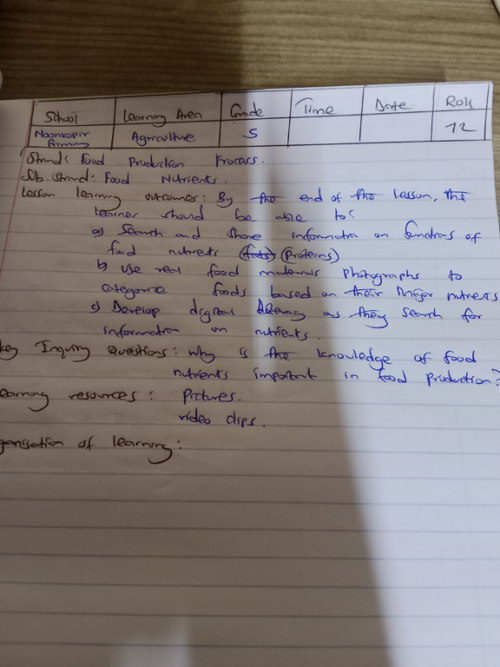 School Learning Area Grade Time Date Roll
Primary Agriculture 5 72
Strand: Food Production Process.
Sub strand: Food Nutrients.
Lesson learning outcomes: By the end of the lesson, the
learner should be able to:
a) Search and share information on functions of
food nutrients (fats) (Proteins)
b) Use real food materials photographs to
categorise foods based on their major nutrients
c) Develop digital literacy as they search for
information on nutrients.
key Inquiry Questions: Why is the knowledge of food
nutrients important in food production?
earning resources: Pictures.
video clips.
ganisation of learning: